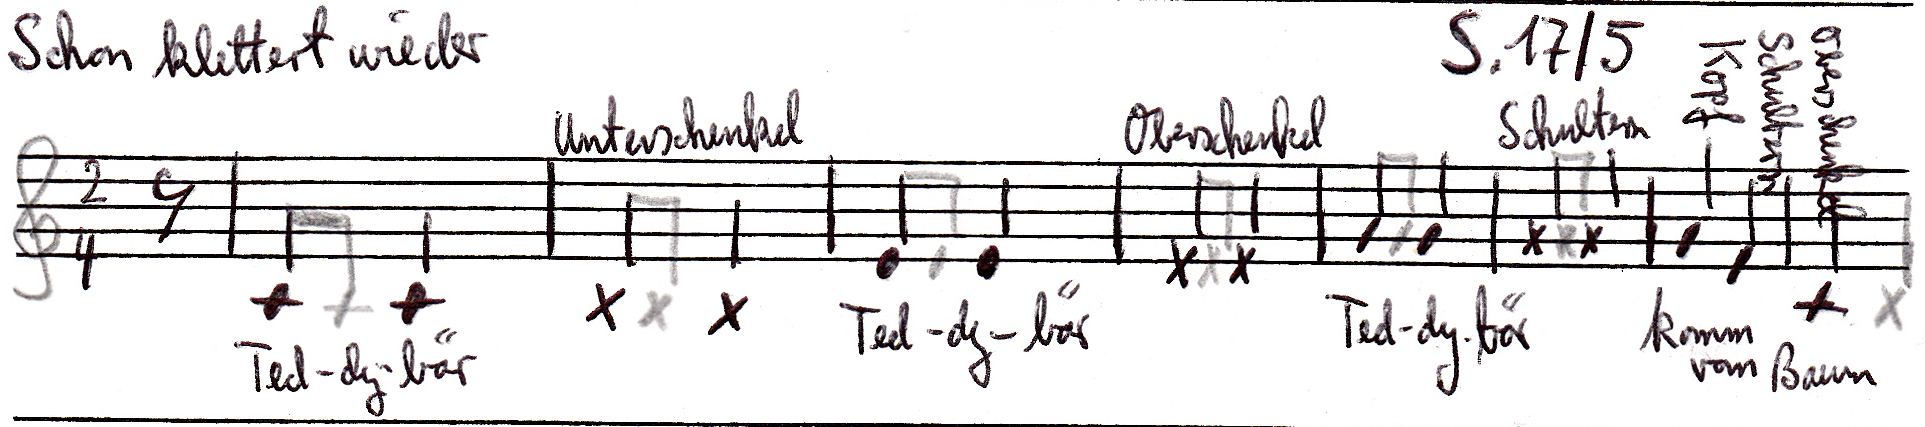 Schon klettert wieder
S. 17/5
Unterschenkel
Oberschenkel
Schultern
Kopf
Schultern
Oberschenkel
2
4
Ted-dy-bär
Ted-dy-bär
Ted-dy-bär
komm
vom Baum